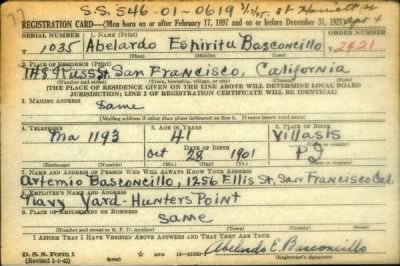 S.S. 546-01-0619
REGISTRATION CARD—(Men born on or after February 17, 1897 and on or before December 31, 1921)
SERIAL NUMBER 1. NAME (Print) ORDER NUMBER
1035 Abelardo Espiritu Basconcillo 2421
(First) (Middle) (Last)
2. PLACE OF RESIDENCE (Print)
Russ St. San Francisco, California
(Number and street) (Town, township, village, or city) (County) (State)
[THE PLACE OF RESIDENCE GIVEN ON THE LINE ABOVE WILL DETERMINE LOCAL BOARD
JURISDICTION; LINE 2 OF REGISTRATION CERTIFICATE WILL BE IDENTICAL]
3. MAILING ADDRESS
Same
[Mailing address if other than place indicated on line 2. If same insert word same]
4. TELEPHONE 5. AGE IN YEARS 6. PLACE OF BIRTH
Ma 1193 41 Villasis
DATE OF BIRTH
Oct 28 1901 P I
(Exchange) (Number) (Mo.) (Day) (Yr.) (State or country)
7. NAME AND ADDRESS OF PERSON WHO WILL ALWAYS KNOW YOUR ADDRESS
Artemio Basconcillo, 1256 Ellis St, San Francisco Cal.
8. EMPLOYER'S NAME AND ADDRESS
Navy Yard - Hunters Point
9. PLACE OF EMPLOYMENT OR BUSINESS
Same
(Number and street or R. F. D. number) (Town) (County) (State)
I AFFIRM THAT I HAVE VERIFIED ABOVE ANSWERS AND THAT THEY ARE TRUE.
D. S. S. Form 1
(Revised 1-1-42) GPO Abelardo E. Basconcillo
(Registrant's signature)